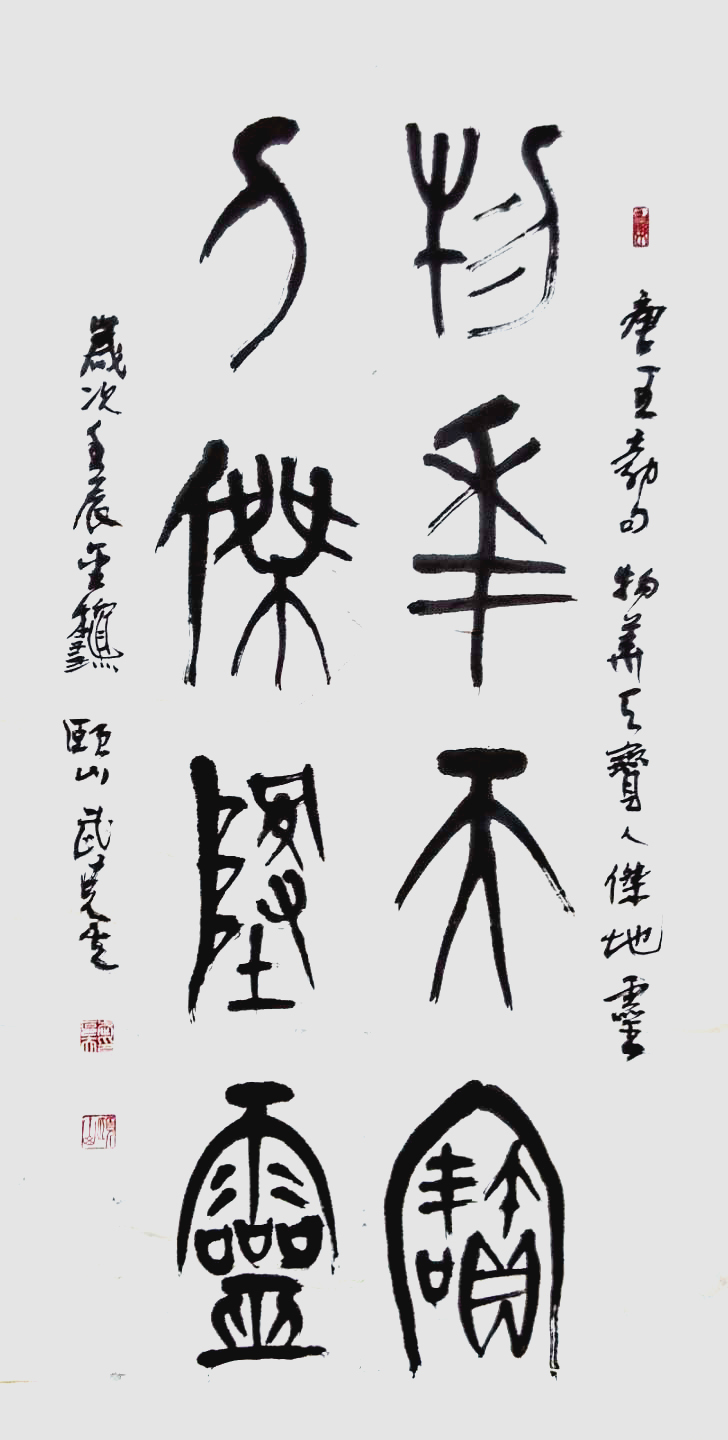 唐王勃句 物華天寶人傑地靈
物華天寶
人傑墬靈
歲次壬辰金龝 頤山 武